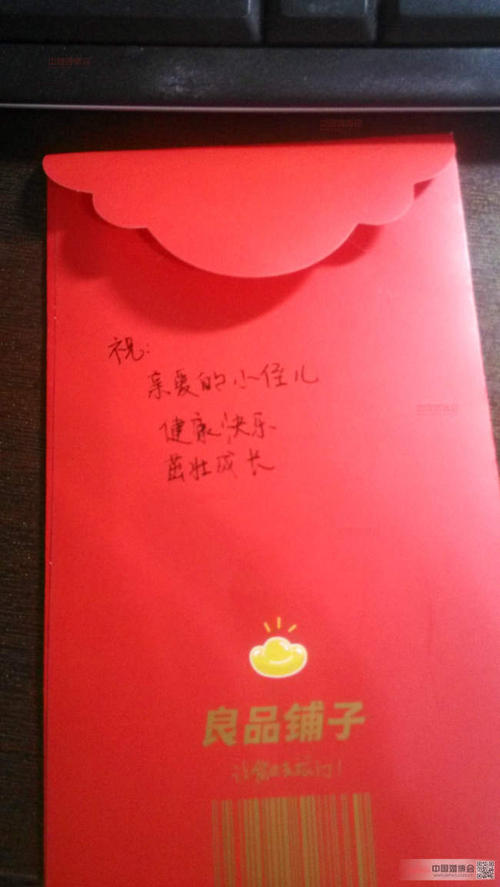 祝:
亲爱的小侄儿
健康快乐
茁壮成长
良品铺子
中国婚博会